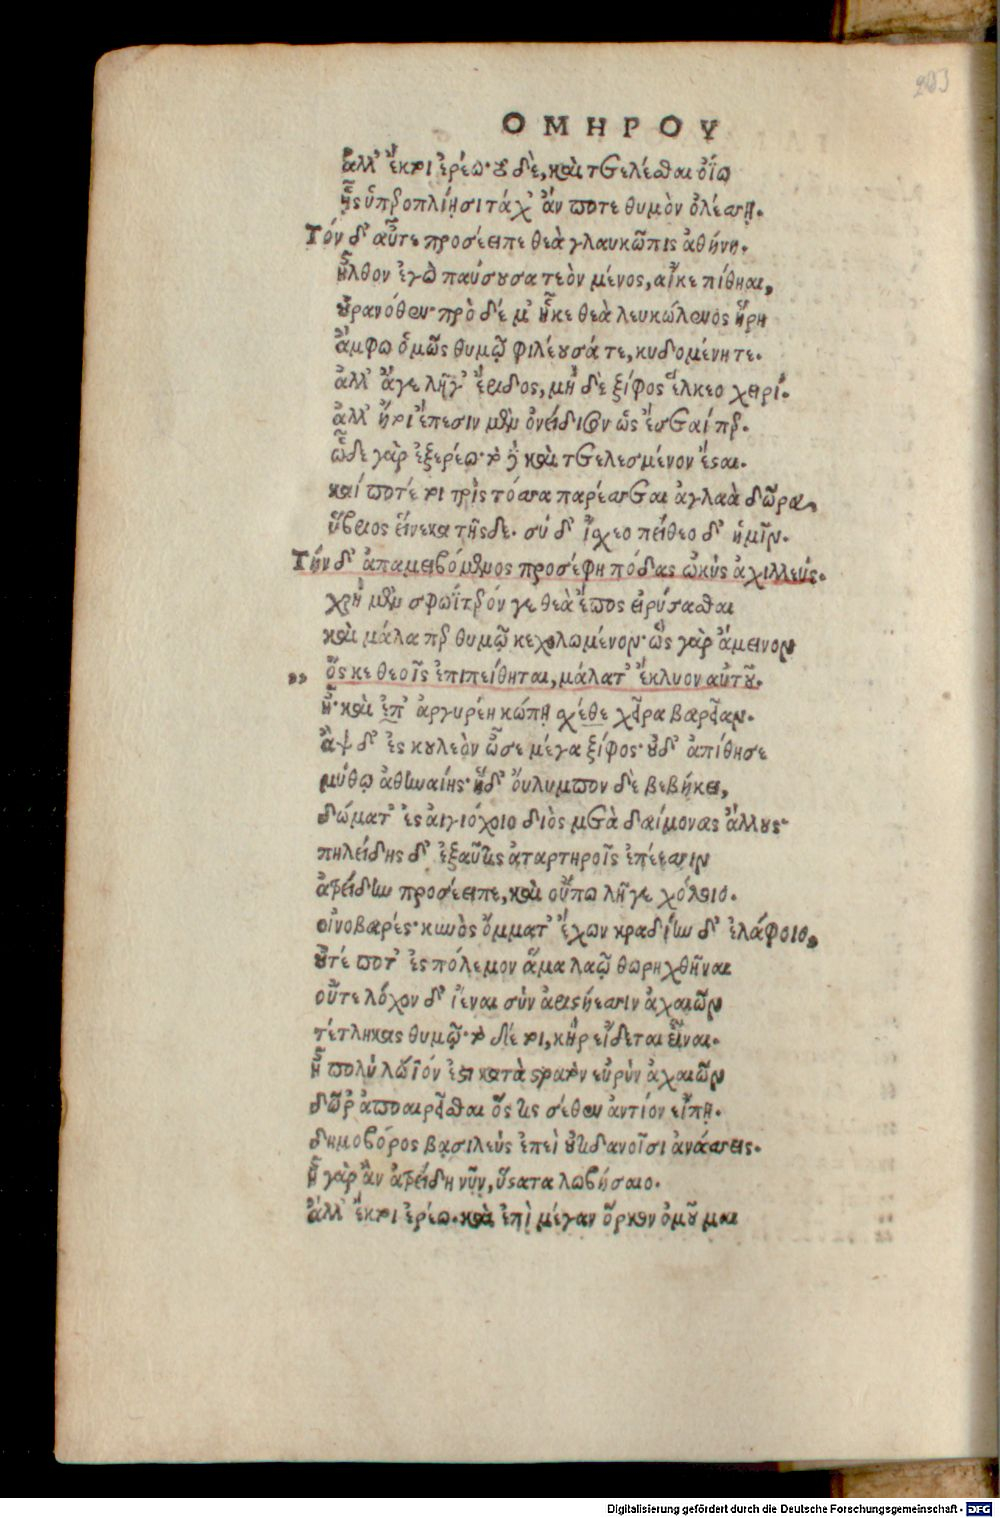 203
ΟΜΗΡΟΥ
ἀλλ' ἔκ τοι ἐρέω· τὸ δὲ, καὶ τελέεσθαι ὀΐω
ᾗς ὑπεροπλίῃσι τάχ' ἄν ποτε θυμὸν ὀλέσσῃ.
Τὸν δ' αὖτε προσέειπε θεὰ γλαυκῶπις ἀθήνη.
ἦλθον ἐγὼ παύσουσα τεὸν μένος, αἴκε πίθηαι,
οὐρανόθεν· πρὸ δέ μ' ἧκε θεὰ λευκώλενος ἥρη
ἄμφω ὁμῶς θυμῷ φιλέουσά τε, κηδομένη τε.
ἀλλ' ἄγε λῆγ' ἔριδος, μὴ δὲ ξίφος ἕλκεο χειρί.
ἀλλ' ἤτοι ἔπεσιν μὲν ὀνείδισον ὡς ἔσεταί περ.
ὧδε γὰρ ἐξερέω· τὸ δὴ καὶ τετελεσμένον ἔσαι.
καί ποτέ τοι τρὶς τόσσα παρέσσεται ἀγλαὰ δῶρα,
ὕβριος εἵνεκα τῆς δε. σὺ δ' ἴσχεο πείθεο δ' ἡμῖν.
Τὴν δ' ἀπαμειβόμενος προσέφη πόδας ὠκὺς ἀχιλλεύς.
χρὴ μὲν σφωΐτερόν γε θεὰ ἔπος εἰρύσασθαι
καὶ μάλα περ θυμῷ κεχολωμένον· ὣς γὰρ ἄμεινον
,, ὅς κε θεοῖς ἐπιπείθηται, μάλατ' ἔκλυον αὐτοῦ.
ἦ· καὶ ἐπ' ἀργυρέῃ κώπῃ σχέθε χεῖρα βαρεῖαν.
ἂψ δ' ἐς κουλεὸν ὦσε μέγα ξίφος· οὐδ' ἀπίθησε
μύθῳ ἀθηναίης· ἡ δ' ὄυλυμπον δὲ βεβήκει,
δώματ' ἐς αἰγιόχοιο διὸς μετὰ δαίμονας ἄλλους·
πηλείδης δ' ἐξαῦτις ἀταρτηροῖς ἐπέεσσιν
ἀτρείδην προσέειπε, καὶ οὔπω λῆγε χόλοιο.
οἰνοβαρές· κυνὸς ὄμματ' ἔχων κραδίην δ' ἐλάφοιο,
οὔτέ ποτ' ἐς πόλεμον ἅμα λαῷ θωρηχθῆναι
οὔτε λόχον δ' ἰέναι σὺν ἀριστήεσσιν ἀχαιῶν
τέτληκας θυμῷ· τὸ δέ τοι, κὴρ εἴδεται εἶναι.
ἦ πολὺ λώϊόν ἐστι κατὰ στρατὸν εὐρὺν ἀχαιῶν
δῶρ' ἀποαιρεῖσθαι ὅς τις σέθεν ἀντίον εἴπῃ.
δημοβόρος βασιλεὺς ἐπεὶ οὐτιδανοῖσι ἀνάσσεις.
ἦ γὰρ ἂν ἀτρείδη νῦν, ὕστατα λωβήσαιο.
ἀλλ' ἔκ τοι ἐρέω. καὶ ἐπὶ μέγαν ὅρκον ὀμοῦμαι
Digitalisierung gefördert durch die Deutsche Forschungsgemeinschaft - DFG